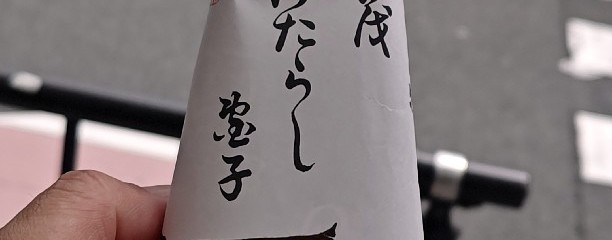 茂
みたらし
團子